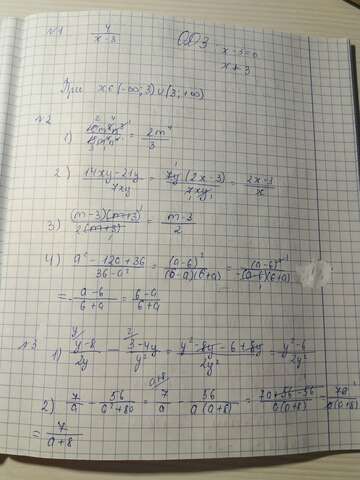 №1 4/(x-3) ОДЗ x-3≠0
x≠3
При x∈(-∞;3)∪(3;+∞)
№2
1) = 2m⁴/3
2) (14xy-21y)/7xy = 7y(2x-3)/7xy = (2x-3)/x
3) (m-3)(m+3)/2(m+3) = (m-3)/2
4) (a²-12a+36)/(36-a²) = (a-6)²/(6-a)(6+a) = (a-6)²/-(a-6)(6+a)
= -(a-6)/(6+a) = (6-a)/(6+a)
№3 1) (y-8)/2y - (3-4y)/y² = (y²-8y-6+8y)/2y² = (y²-6)/2y²
2) 7/a - 56/(a²+8a) = 7/a - 56/a(a+8) = (7a+56-56)/a(a+8) = 7a/a(a+8)
= 7/(a+8)